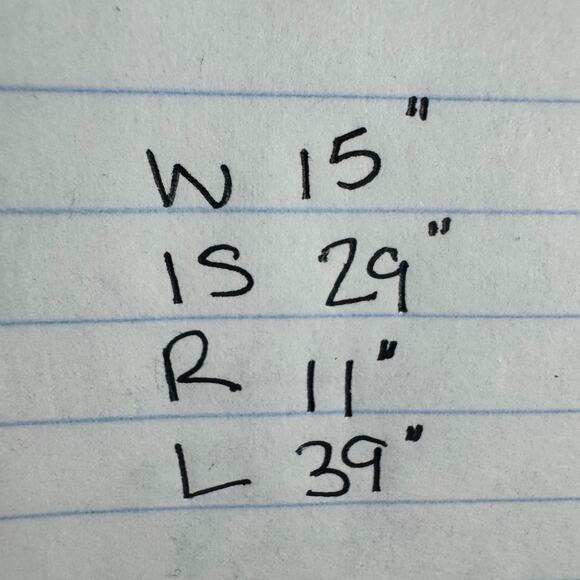 W 15"
IS 29"
R 11"
L 39"